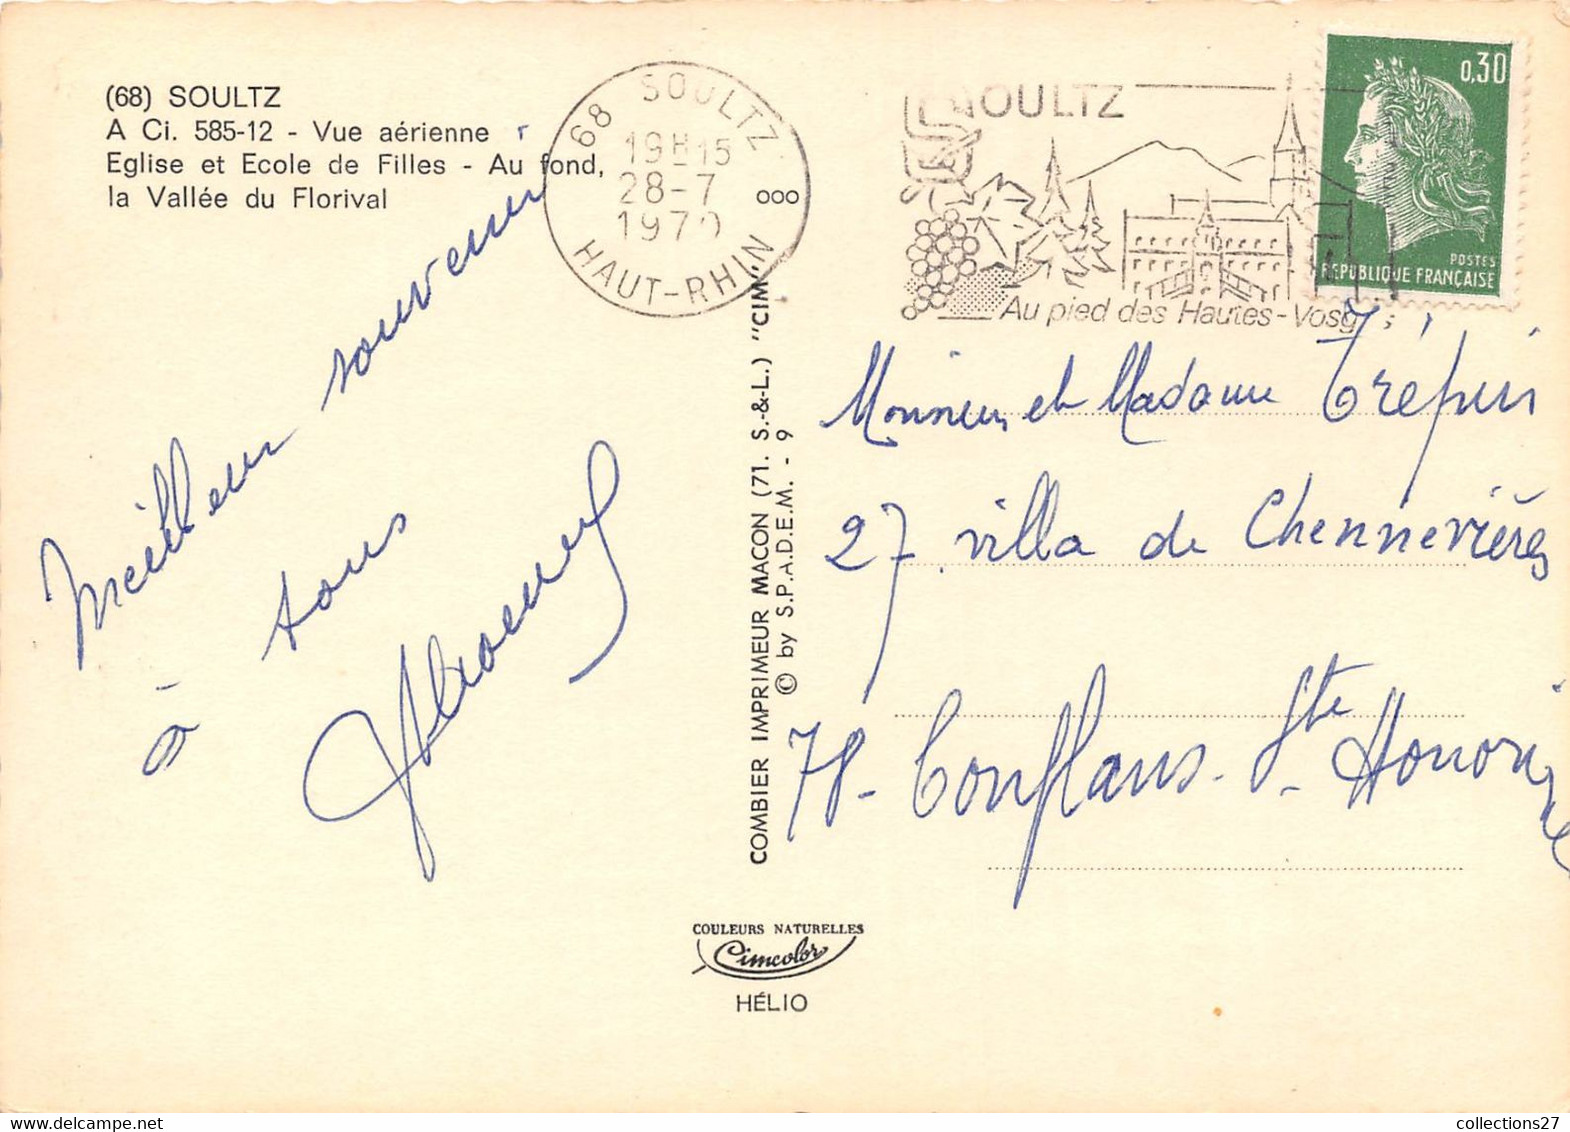 (68) SOULTZ
A Ci. 585-12 - Vue aérienne
Eglise et Ecole de Filles - Au fond,
la Vallée du Florival
68 SOULTZ
19H15
28-7
1970
HAUT-RHIN
SOULTZ
Au pied des Hautes-Vosges
0,30
POSTES
REPUBLIQUE FRANÇAISE
Meilleur souvenir
à tous
COMBIER IMPRIMEUR MACON (71. S.-&-L.) "CIM"
© by S.P.A.D.E.M. - 9
Monsieur et Madame Trépin
27 villa de Chennevières
78 - Conflans - Ste Honorine
COULEURS NATURELLES
Cimcolor
HÉLIO
collections27